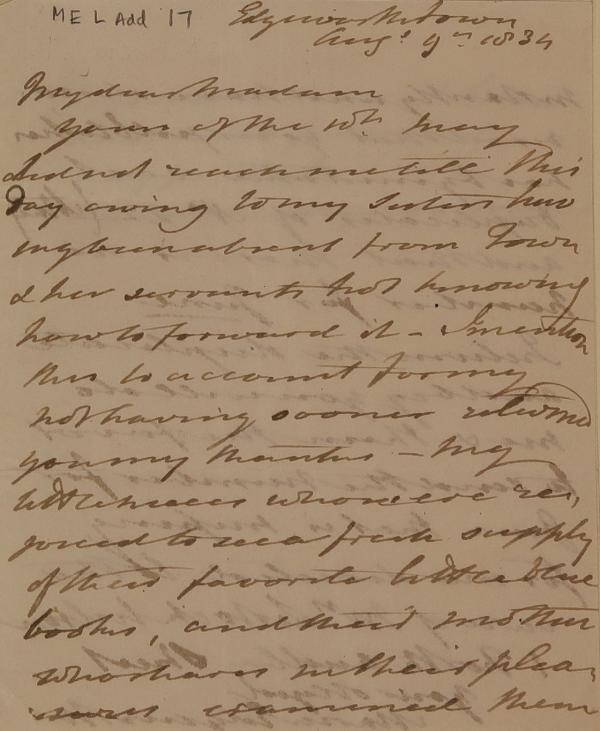 ME L Add 17
Edgeworthstown
Augt. 9th 1834
My dear Madam
Yours of the 10th May
did not reach me till this
day owing to my Sisters hav
ing been absent from Town
& her servants not knowing
how to forward it - I mention
this to account for my
not having sooner returned
you my thanks - My
little nieces were re,
joiced to see a fresh supply
of their favorite little blue
books, and their mother
who shares in their plea,
sures examined them